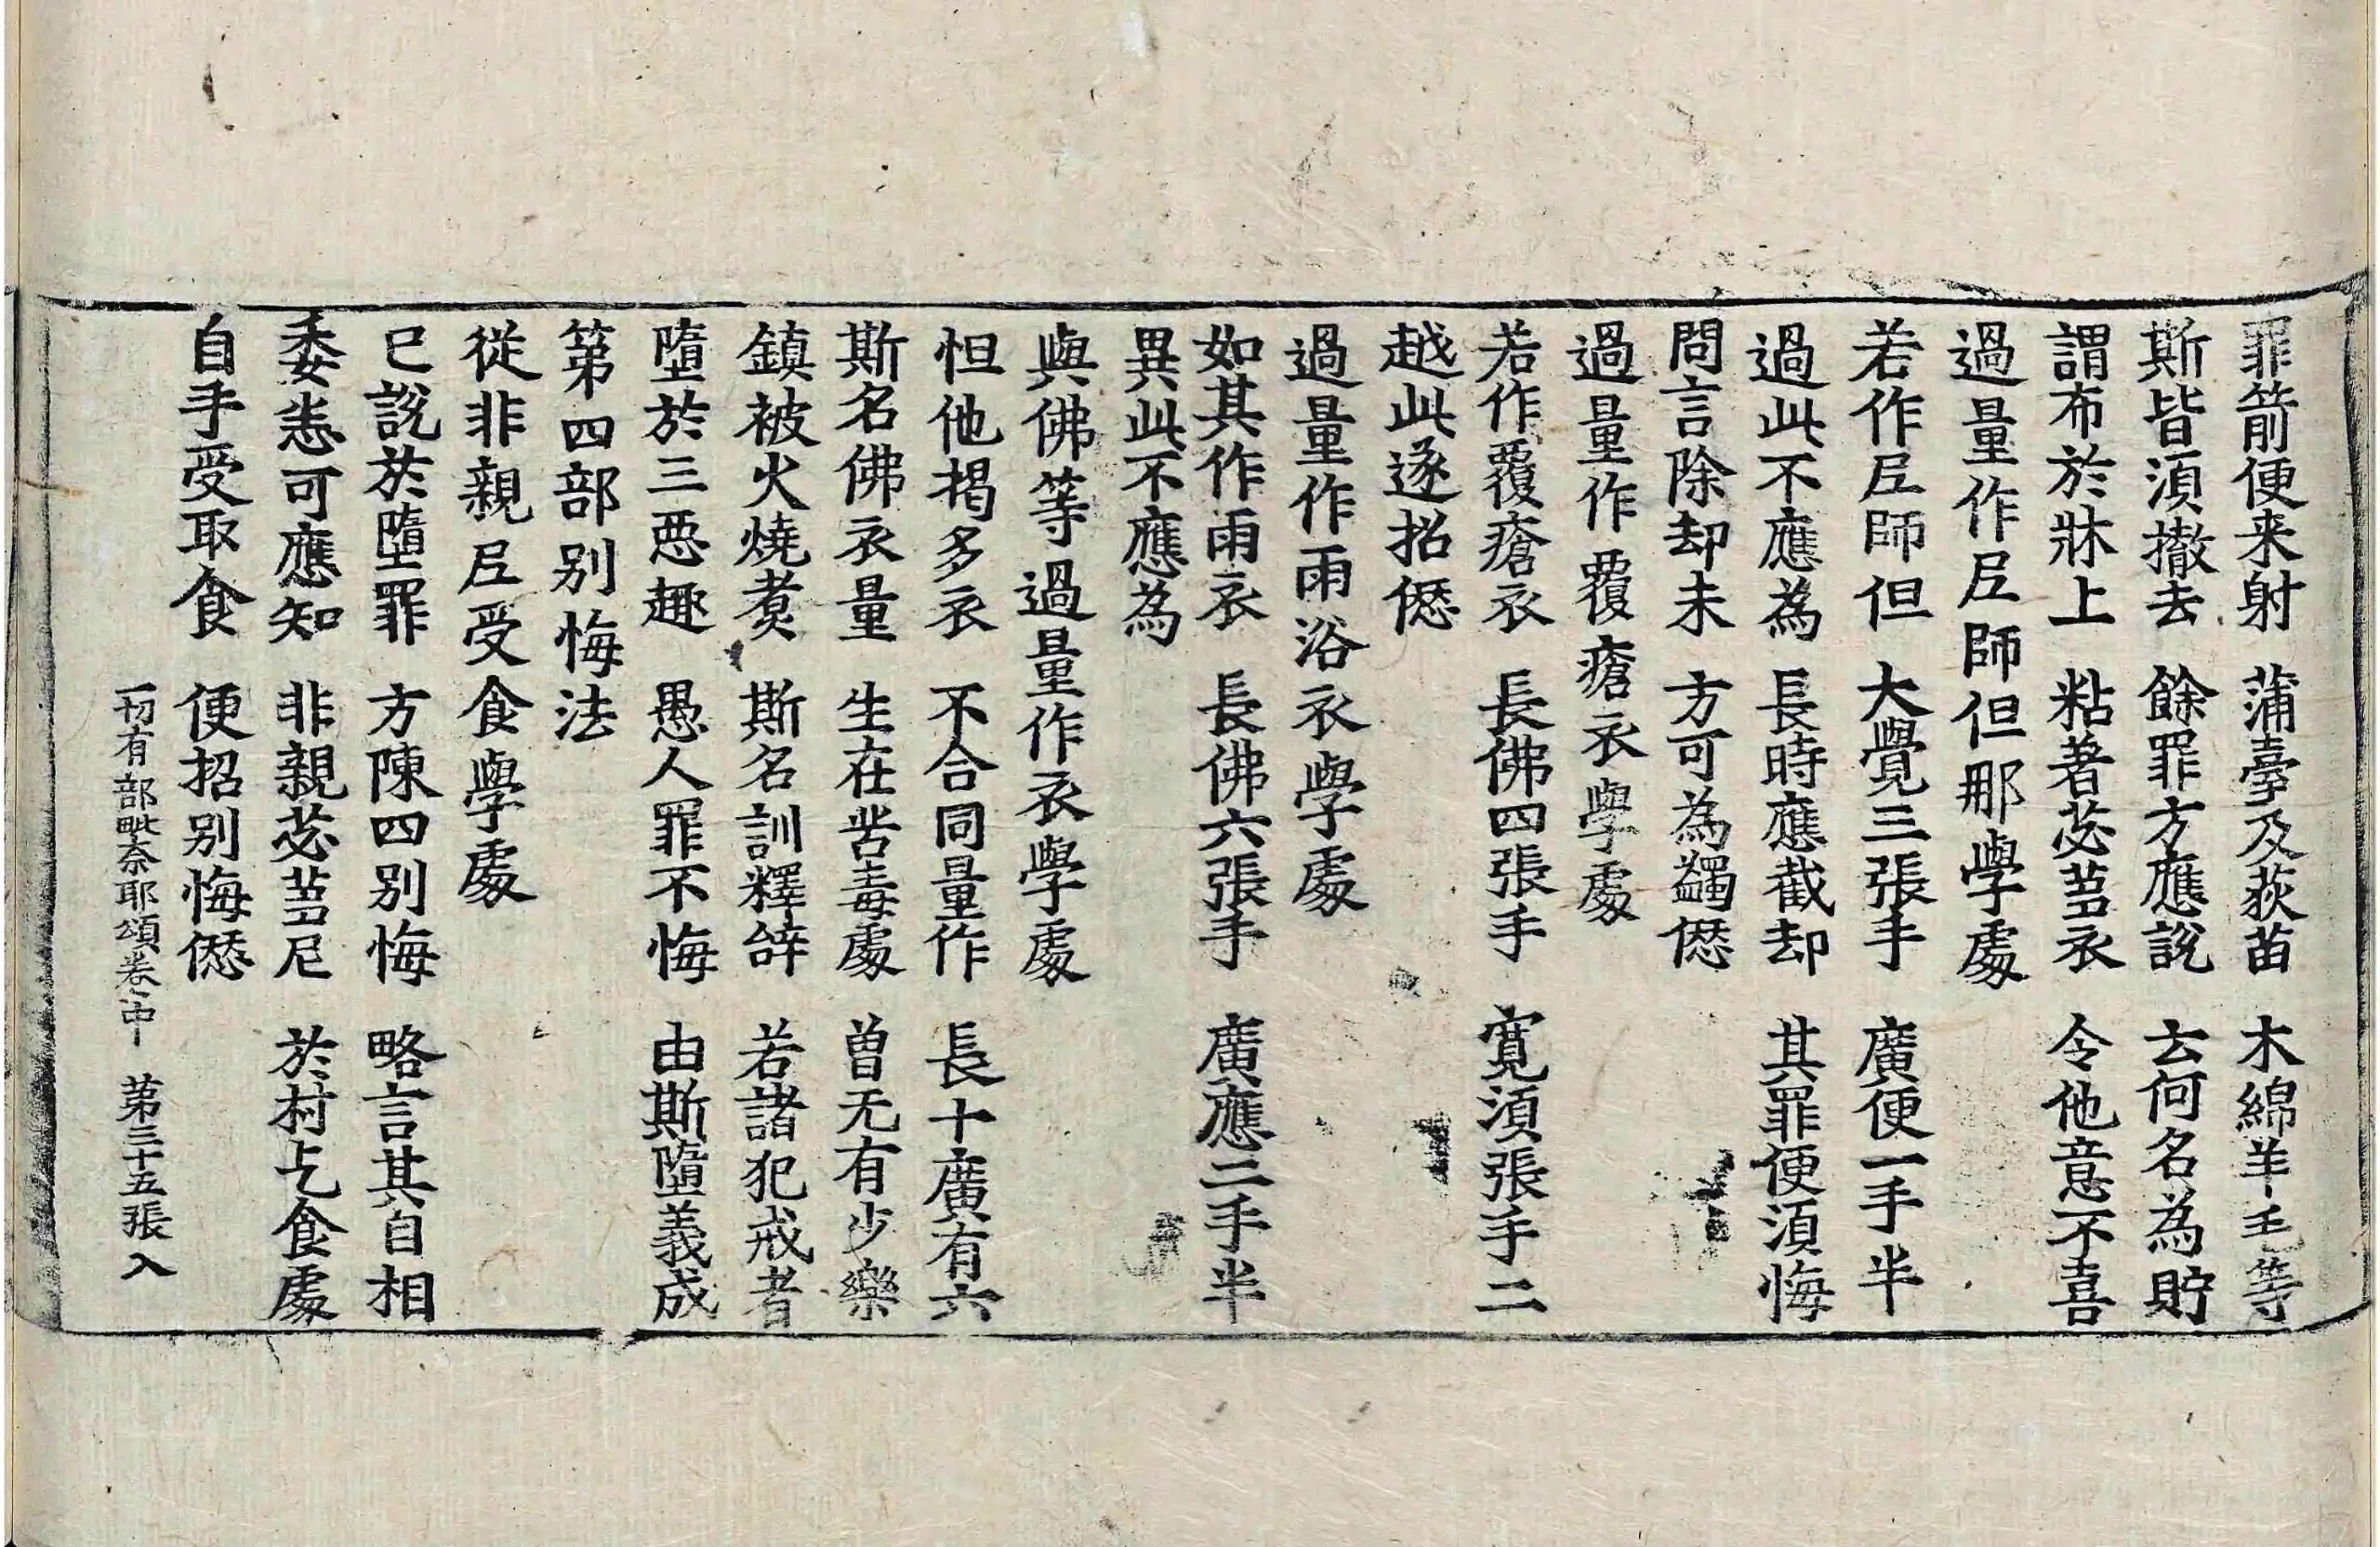 罪箭便来射 蒲臺及荻苗 木綿羊毛等
斯皆須撤去 餘罪方應說 云何名為貯
謂布於牀上 粘著苾芻衣 令他意不喜
過量作尼師但那學處
若作尼師但 大覺三張手 廣便一手半
過此不應為 長時應截却 其罪便須悔
問言除却未 方可為蠲𠎝
過量作覆瘡衣學處
若作覆瘡衣 長佛四張手 寬須張手二
越此遂招𠎝
過量作雨浴衣學處
如其作雨衣 長佛六張手 廣應二手半
異此不應為
與佛等過量作衣學處
怛他揭多衣 不合同量作 長十廣有六
斯名佛衣量 生在苦毒處 曾无有少樂
鎮被火燒煑 斯名訓釋辞 若諸犯戒者
墮於三惡趣 愚人罪不悔 由斯墮義成
第四部别悔法
從非親尼受食學處
已說於墮罪 方陳四别悔 略言其自相
委悉可應知 非親苾芻尼 於村乞食處
自手受取食 便招别悔𠎝
一切有部毗奈耶頌卷中 第三十五張 入